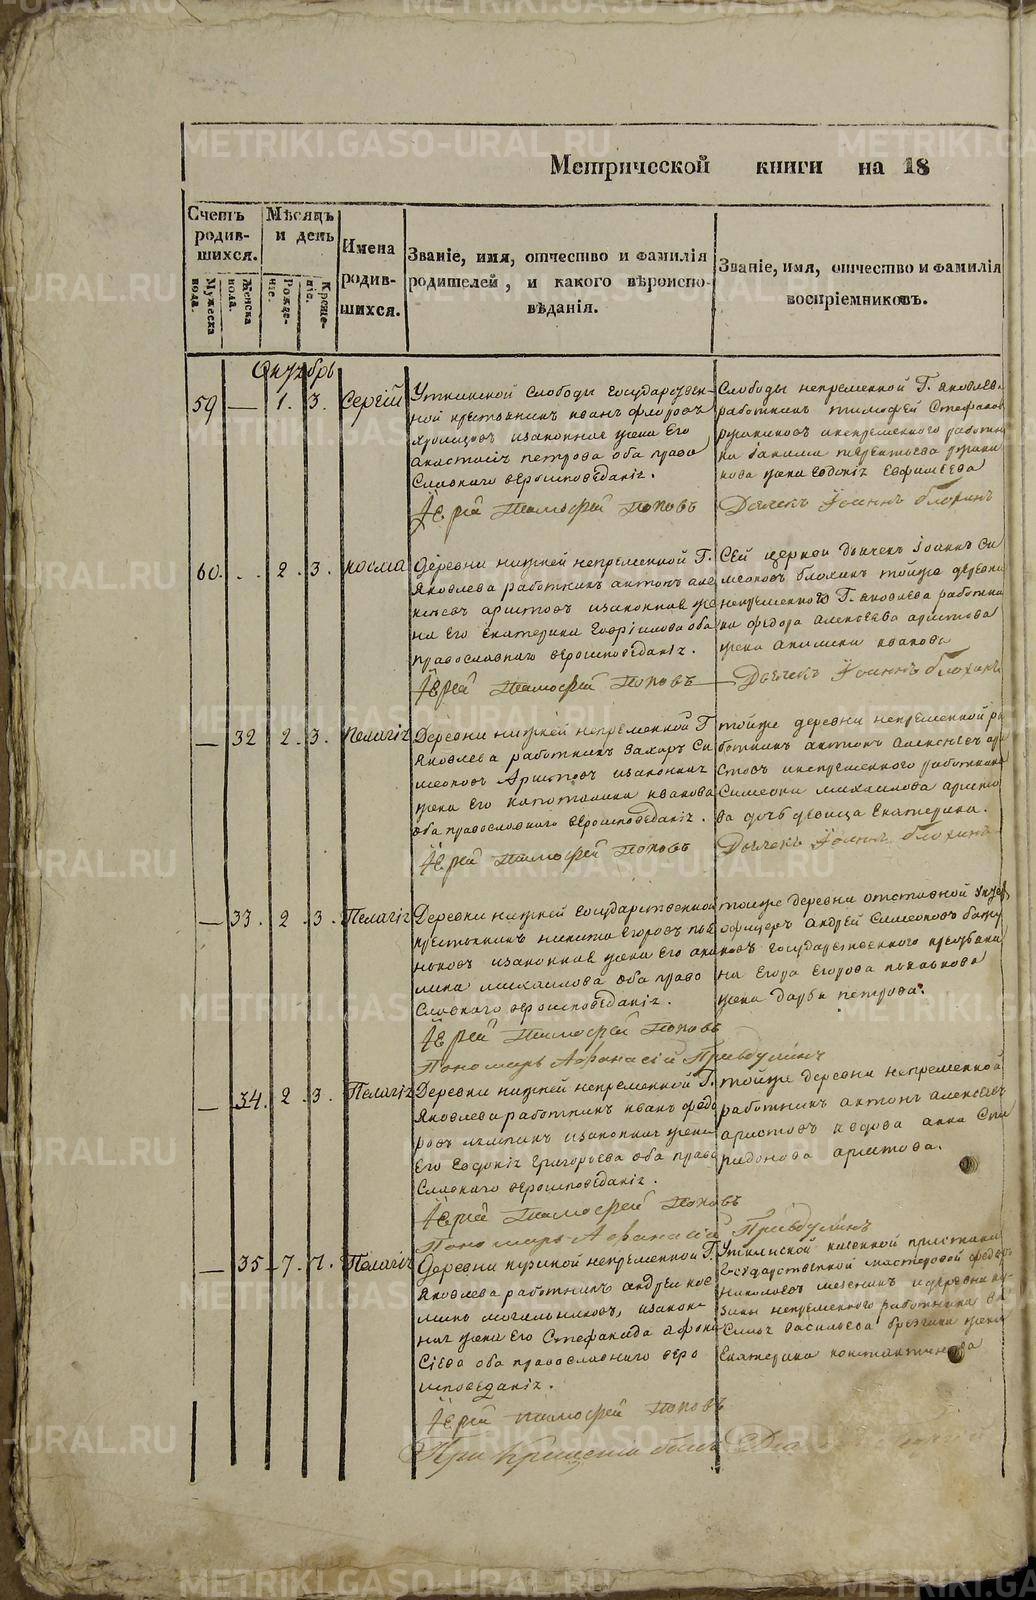 METRIKI.GASO-URAL.RU
Метрической книги на 18
Счетъ родившихся.
Мѣсяцъ и день
Имена родившихся.
Званіе, имя, отчество и фамилія родителей, и какого вѣроисповѣданія.
Званіе, имя, отчество и фамилія воспріемниковъ.
Мужеска пола.
Женска пола.
Рожденіе.
Крещеніе.
Октябрь
59 — 1. 3. Сергій
Уткинской слободы государствен-
ной крестьянинъ иванъ флоровъ
изаконная жена Его
анастасія петрова оба право
славнаго вероисповеданія.
Іерей Тимофей Поповъ
Слободы непременной Г. яковлев.
работникъ тимофей Стефанов
инепременнаго работни
жена евдокія Евфимьева
Дьячекъ Іоаннъ блохинъ
60. . . 2. 3. косма
Деревни нижней непременной Г.
Яковлева работникъ антонъ але
ксеевъ аристовъ изаконная же
на Его Екатерина Гаврилова оба
православнаго вероисповеданія.
Іерей Тимофей Поповъ
Сей церкви дьячекъ іоаннъ си
меоновъ блохинъ тойже деревни
непременнаго Г. яковлева работни
ка федора алексеева аристова
жена акилина иванова
Дьячекъ Іоаннъ блохинъ
— 32 2. 3. Пелагія
Деревни нижней непременной Г
Яковлева работникъ захаръ Си
меоновъ Аристовъ изаконная
жена Его капиталина иванова
оба православнаго вероисповеданія.
Іерей Тимофей Поповъ
тойже деревни непременной ра
ботникъ антонъ алексеевъ ари
стовъ инепременнаго работника
Симеона михаилова аристо
ва дочь девица Екатерина.
Дьячекъ Іоаннъ блохинъ
— 33. 2 3. Пелагія
Деревни нижней государственной
крестьянинъ никита Егоровъ пья
ньковъ изаконная жена Его аки
лина михаилова оба право
славнаго вероисповеданія.
Іерей Тимофей Поповъ
Пономарь Афанасій
тойже деревни отставной унтер
офицеръ андрей Симеоновъ
государственнаго крестьяни
на Егора Егорова пьянькова
жена дарья петрова.
— 34. 2 3. Пелагія
Деревни нижней непременной Г.
Яковлева работникъ иванъ федо
ровъ изаконная жена
Его Евдокія григорьева оба право
славнаго вероисповеданія.
Іерей Тимофей Поповъ
Пономарь Афанасій
тойже деревни непременной
работникъ антонъ алексеевъ
аристовъ ивдова анна Спи
ридонова аристова.
— 35 7. 7. Пелагія
Деревни кузиной непременной Г.
Яковлева работникъ андрей кос
минъ могильниковъ, изакон-
ная жена Его Стефанида афона
Сіева оба православнаго веро
исповеданія.
Іерей Тимофей Поповъ
При крещеніи былъ
Уткинской казенной пристани
государственной мастеровой федоръ
николаевъ идеревни ку-
зины непременнаго работника
васильева жена
Екатерина константинова